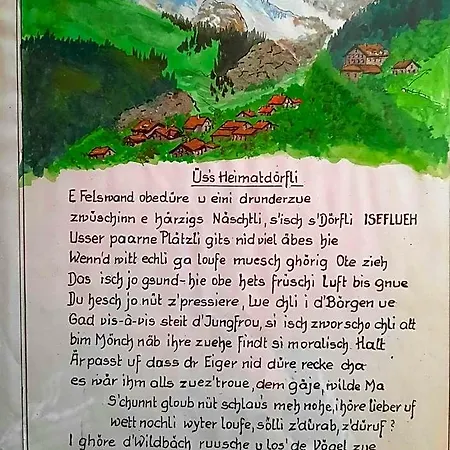 Üs's Heimatdörfli
E Felswand obedüre u eini drunderzue
zwüschinn e härzigs Näschtli, s'isch s'Dörfli ISEFLUEH
Usser paarne Plätzli gits nid viel äbes hie
Wenn'd witt echli ga loufe muesch ghörig Ote zieh
Das isch jo gsund-hie obe hets früschi Luft bis gnue
Du hesch jo nüt z'pressiere, Lue chli i d'Bärgen ue
Gad vis-à-vis steit d'Jungfrou, si isch zworscho chli alt
bim Mönch näb ihre zuehe findt si moralisch. Halt
Är passt uf dass dr Eiger nid düre recke cha
es wär ihm alls zuez'troue, dem gäje, wilde Ma
S'chunnt gloub nüt schlau's meh nohe, i höre lieber uf
wett nochli wyter loufe, sölli z'dürab, z'düruf?
I ghöre d'Wildbäch ruusche u los' de Vögel zue